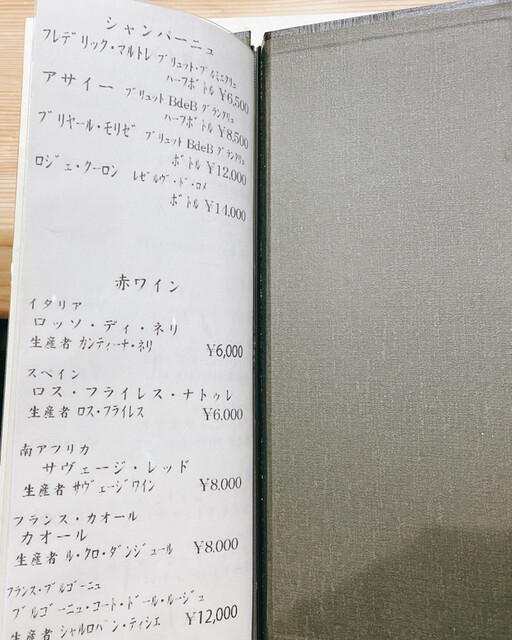 シャンパーニュ
フレデリック・マルトレ ブリュット・プルミエクリュ
ハーフボトル ¥6,500
アサイー ブリュット BdeB グランクリュ
ハーフボトル ¥8,500
ブリヤール・モリゼ ブリュット BdeB グランクリュ
ボトル ¥12,000
ロジェ・クーロン レゼルヴ・ド・ロメ
ボトル ¥14,000
赤ワイン
イタリア
ロッソ・ディ・ネリ
生産者 カンティーナ・ネリ ¥6,000
スペイン
ロス・フライレス・ナトゥレ
生産者 ロス・フライレス ¥6,000
南アフリカ
サヴェージ・レッド
生産者 サヴェージワイン ¥8,000
フランス・カオール
カオール
生産者 ル・クロ・ダンジュール ¥8,000
フランス・ブルゴーニュ
ブルゴーニュ・コート・ドール・ルージュ
生産者 シャルロパン・ティシエ ¥12,000